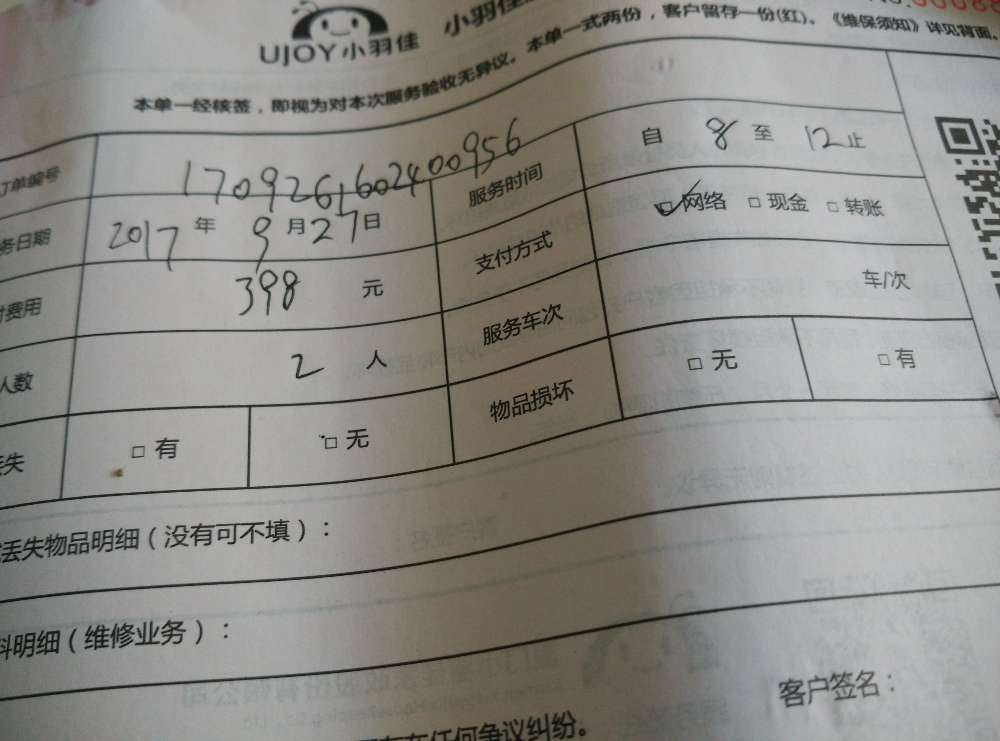 UJOY小羽佳 小羽佳
本单一经核签，即视为对本次服务验收无异议。本单一式两份，客户留存一份(红)。《维保须知》详见背面。
订单编号 170926160240​0956 服务时间 自 8 至 12 止
务日期 2017 年 9 月 27 日 支付方式 ☑网络 □现金 □转账
付费用 398 元 服务车次 车/次
人数 2 人 物品损坏 □无 □有
丢失 □有 □无
丢失物品明细（没有可不填）：
料明细（维修业务）：
客户签名：
存在任何争议纠纷。